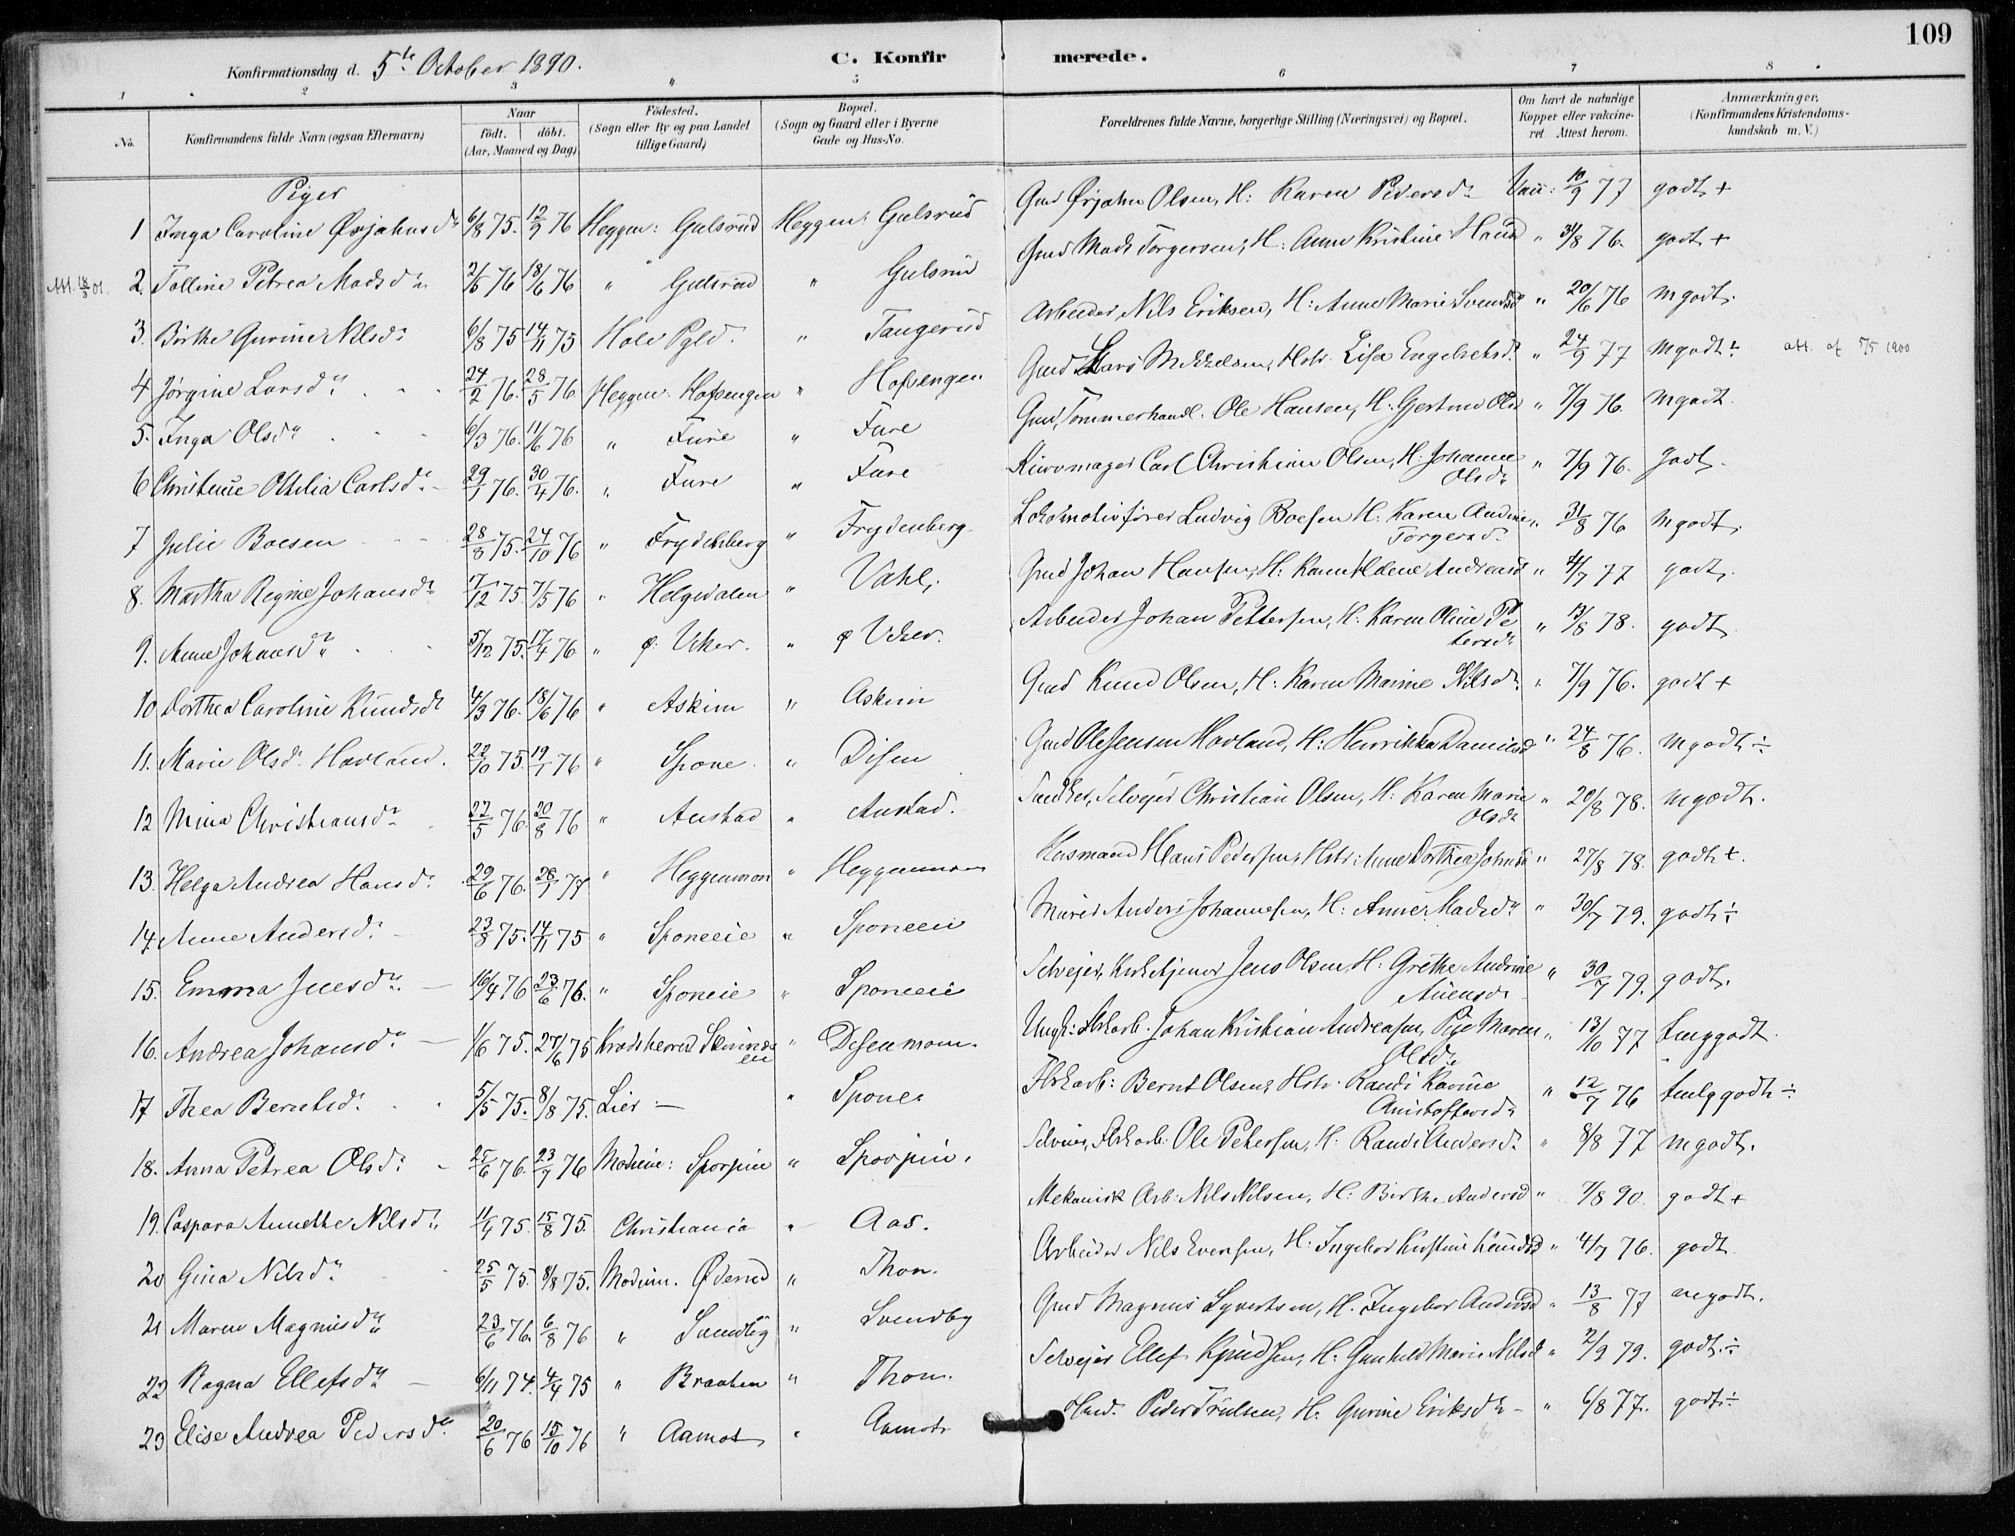 109
Konfirmationsdag d. 5te October 1890.
C. Konfirmerede.
1 2 3 4 5 6 7 8
No.
Konfirmandens fulde Navn (ogsaa Efternavn)
Naar
født. døbt.
(Aar, Maaned og Dag)
Fødested.
(Sogn eller By og paa Landet
tillige Gaard)
Bopæl.
(Sogn og Gaard eller i Byerne
Gade og Hus-No.
Forældrenes fulde Navne, borgerlige Stilling (Næringsvei) og Bopæl.
Om havt de naturlige
Kopper eller vakcine-
ret. Attest herom.
Anmærkninger.
(Konfirmandens Kristendoms-
kundskab m. V.)
Piger
1 Inga Caroline Ørjahnsdr 6/8 75. 12/9 76 Heggen: Gulsrud Heggen: Gulsrud Gmd Ørjahn Olsen, H: Karen Pedersdr Vacc: 10/9 77 godt +
Att. 18/3 01. 2. Talline Petrea Madsdr 2/5 76 18/6 76 " Gulsrud " Gulsrud Gmd Mads Torgersen, H: Anne Kristine " 31/8 76. godt +
3. Birthe Gurine Nilsdr 6/8 75 14/11 75 Hole Pgld. " Tangerud Arbeider Nils Eriksen, H: Anne Marie Svendsd " 20/6 76 mgodt.
4 Jørgine Larsdr 24/2 76. 28/5 76 Heggen: Hofsengen " Hofsengen Gmd Lars Mikkelsen, Hstr. Lisa Engebretsdr " 24/9 77 mgodt. att. af 5/5 1900
5. Inga Olsdr 6/3 76. 11/6 76 " Fure " Fure Gmd, Tømmerhandl. Ole Hansen, H. Gjertrud Olsd " 7/9 76. mgodt
6 Christine Othilia Carlsdr 29/1 76. 30/4 76. " Fure " Fure Kurvmager Carl Christian Olsen, H. Johanne " 7/9 76. godt.
Olsdr
7 Julie Boesen 28/8 75. 24/10 76 " Frydenberg " Frydenberg Lokomotivfører Ludvig Boesen H. Karen Andrine " 31/8 76 mgodt.
Torgersdr
8. Martha Regine Johansdr 17/12 75. 7/5 76 " Helgedalen " Vahl, Gmd Johan Hansen, H: Karen Helene Andreasd " 4/7 77 godt.
9. Anne Johansdr 5/12 75. 17/4 76 " ø. Viker. " ø Viker. Arbeider Johan Pettersen, H. Karen Oline Pe- " 13/8 78. godt
tersdr
10 Dorthea Caroline Knudsdr 4/3 76. 18/6 76 " Askim " Askim Gmd Knud Olsen, H: Karen Marine Nilsdr " 7/9 76. godt +
11. Marie Olsdr Hovland. 22/10 75. 19/1 76 " Spone " Disen Gmd Ole Jensen Hovland, H: Henrikka Danielsd " 24/8 76. mgodt ÷
12 Mina Christiansdr 27/5 76. 20/8 76 " Anstad " Anstad. Snedker, Selveier Christian Olsen, H. Karen Marie " 20/8 78. mgodt.
Olsdr
13. Helga Andrea Hansdr 29/6 76. 28/1 77 " Heggenmoen " Heggenmoen Husmand Hans Pedersen, Hstr: Anne Dorthea Johnsd " 27/8 78. godt +.
14. Anne Andersdr 23/8 75. 14/11 75 " Sponeeie " Sponeeie Murer Anders Johannesen, H: Anne Madsdr " 30/7 79. godt ÷
15. Emma Jensdr 16/4 76 23/6 76. " Sponeie " Sponeeie Selveier, Kirketjener Jens Olsen H. Grethe Andrine " 30/7 79. godt.
16. Andrea Johansdr 1/6 75. 27/6 75 Krødsherred " Disenmoen. Ungk: Fbrkarb. Johan Kristian Andreasen, Pige Maren " 13/10 77 tmggodt.
Olsdr
17 Thea Berntsdr 5/5 75. 8/8 75. Lier — " Spone Fbrkarb: Bernt Olsen, Hstr. Randi Karine " 12/7 76 tmlggodt ÷
Christoffersdr
18. Anna Petrea Olsdr 25/6 76. 23/7 76 Modum: " Selveier, Fbrkarb. Ole Petersen, H: Randi Andersdr " 8/8 77 mgodt.
19. Caspara Annethe Nilsdr 11/4 75. 15/8 75. Christiania " Aas. Mekanisk Arb. Nils Nilsen, H. Birthe Andersd " 7/8 90. godt +
20 Gina Nilsdr 25/5 75. 8/8 75. Modum. Øderud " Thon. Arbeider Nils Evensen, H: Ingebor Kirstine Knudsd " 4/7 76. godt
21 Maren Magnusdr 23/6 76. 6/8 76 " Svendby " Svendby Gmd Magnus Syvertsen, H. Ingebor Andersd " 13/8 77 mgodt.
22 Ragna Ellefsdr 6/11 74. 4/4 75 " Braaten " Thon. Selveier Ellef Knudsen, H. Gunhild Marie Nilsd " 2/9 79. godt ÷
23 Elise Andrea Pedersdr 20/6 76 15/10 76 " Aamot " Aamot Hmd. Peder Trulsen, H. Gurine Eriksdr " 6/8 77. godt ÷